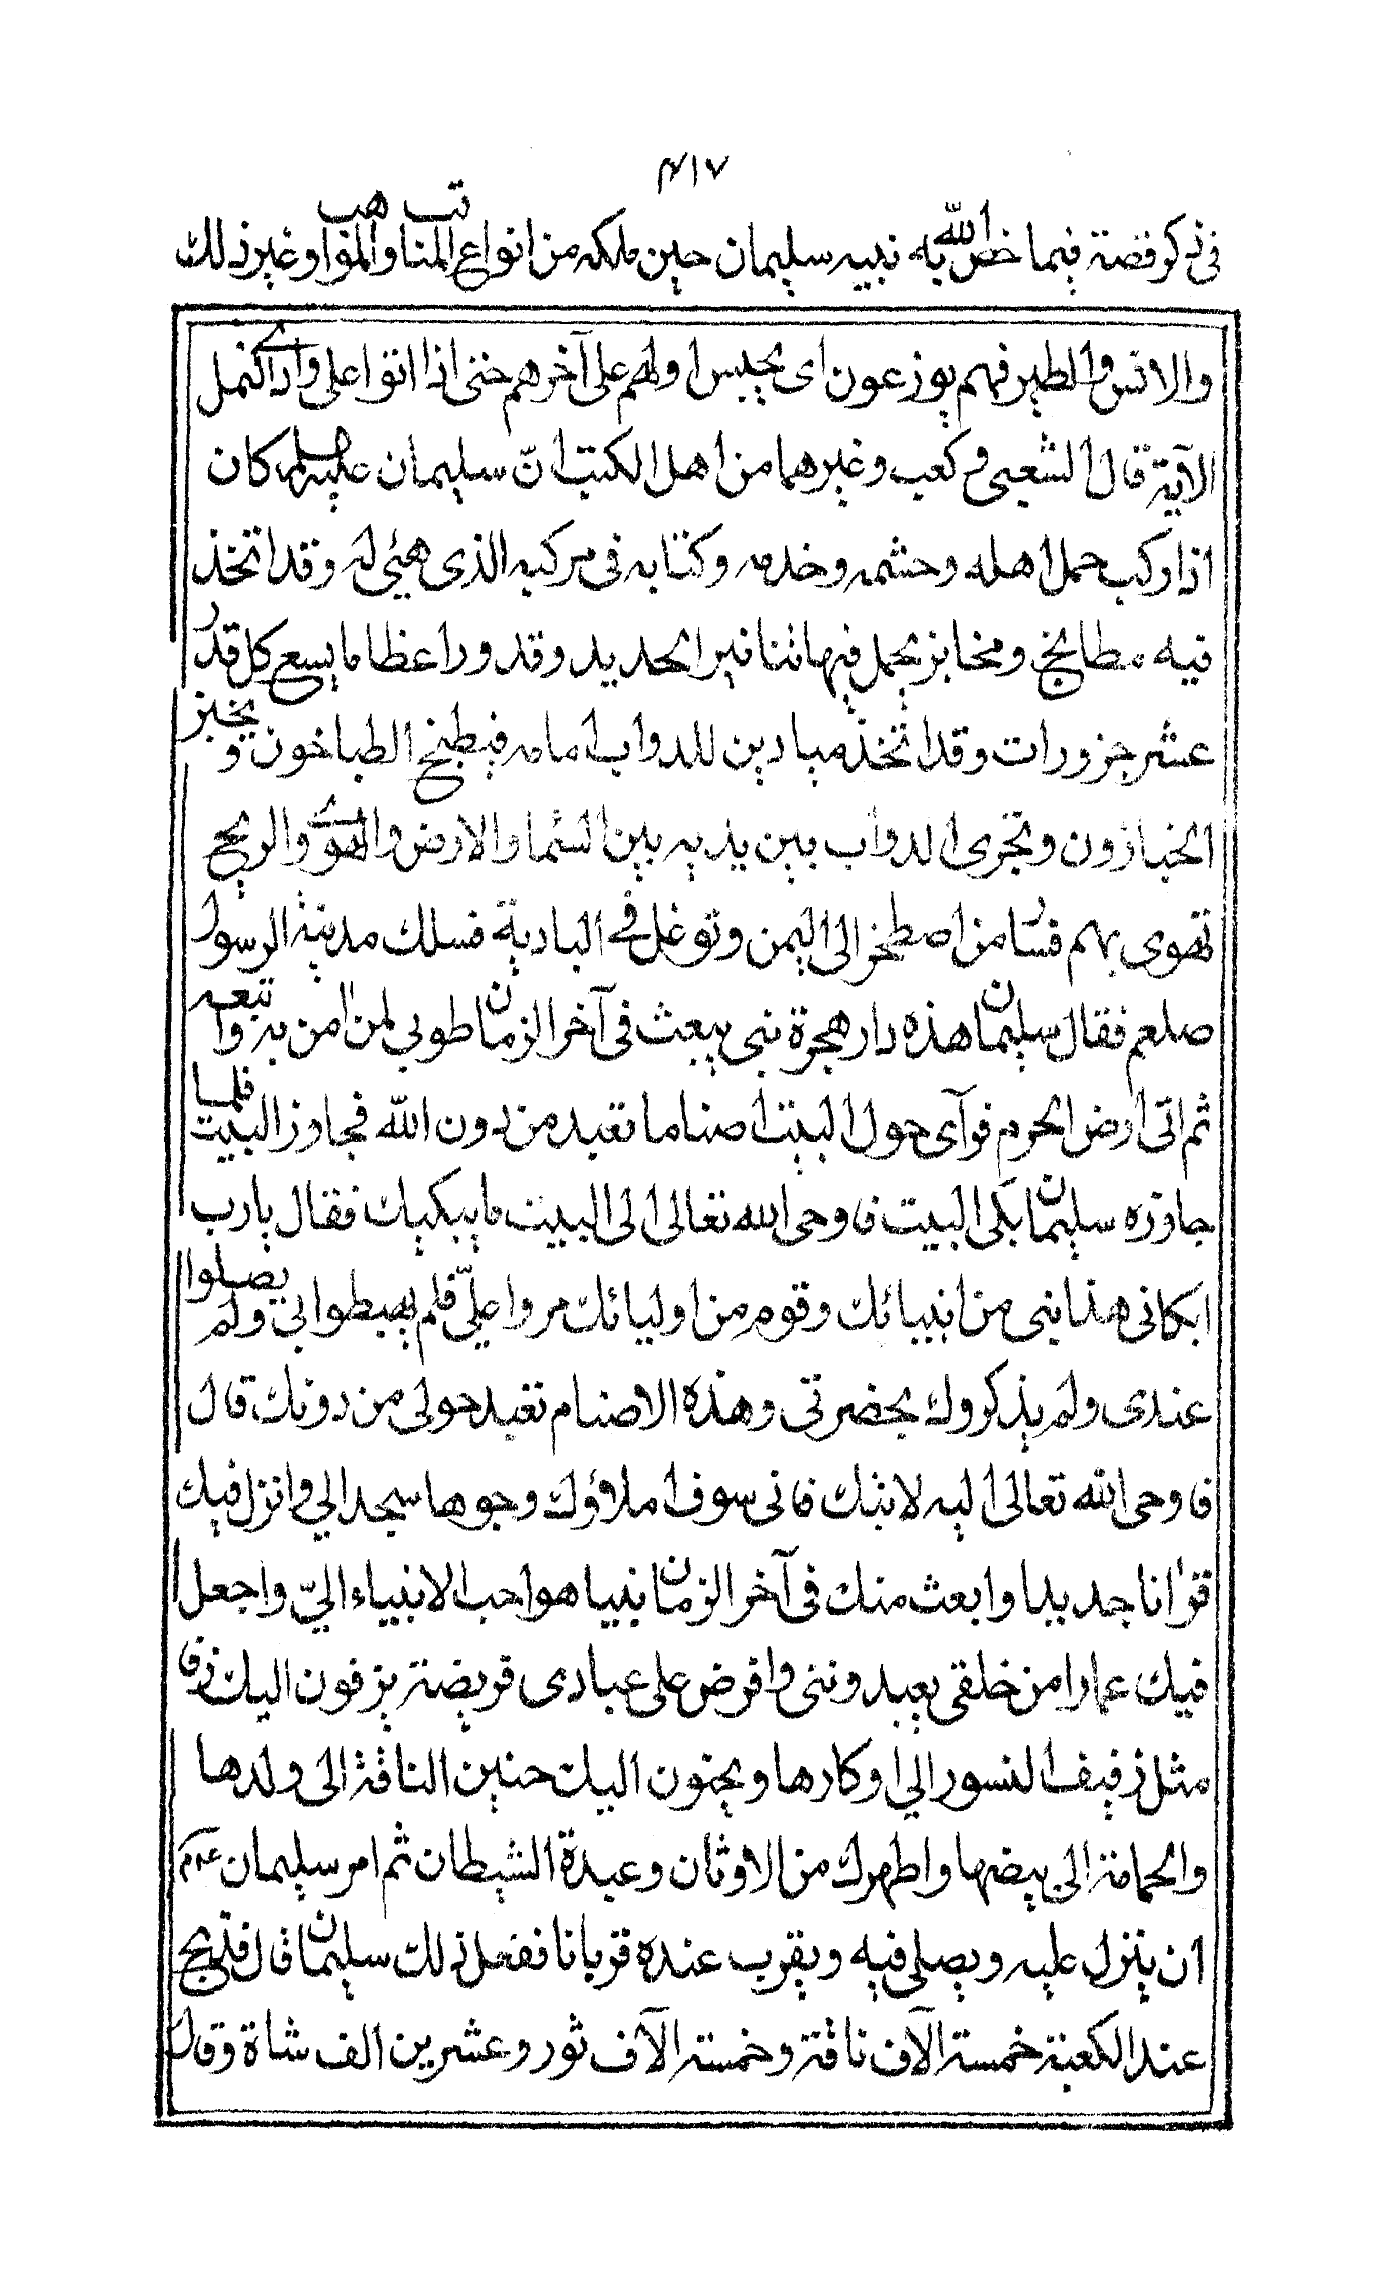 ٤١٧
فى ذكر قصة فيما خص الله به نبيه سليمان حين ملكه من انواع المناقب والمواهب وغير ذلك
والانس والطير فهم يوزعون اى يحبس اولهم على آخرهم حتى اذا اتوا على واد النمل
الآية قال الشعبى وكعب وغيرهما من اهل الكتب انّ سليمان عليه السلم كان
اذا ركب حمل اهله وحشمه وخدمه وكتابه فى مركبه الذى هيئ له وقد اتخذ
فيه مطابخ ومخابز يحمل فيها تنانير الحديد وقدورا عظاما يسع كل قدر
عشر جزورات وقد اتخذ ميادين للدواب امامه فيطبخ الطباخون ويخبز
الخبازون وتجرى الدواب بين يديه بين السما والارض والهوى والريح
تهوى بهم فسار من اصطخر الى اليمن وتوغل فى البادية فسلك مدينة الرسول
صلعم فقال سليمان هذه دار هجرة نبى يبعث فى آخر الزمان طوبى لمن امن به واتبعه
ثم اتى ارض الحرم فرآى حول البيت اصناما تعبد من دون الله فجاوز البيت فلما
جاوزه سليمان بكى البيت فاوحى الله تعالى الى البيت ما يبكيك فقال يارب
ابكانى هذا نبى من انبيائك وقوم من اوليائك مروا علىّ فلم يهبطوا بي ولم يصلوا
عندى ولم يذكروك بحضرتى وهذه الاصنام تعبد حولى من دونك قال
فاوحى الله تعالى اليه لا تبك فانى سوف املاؤك وجوها سجدا الي وانزل فيك
قرانا جديدا وابعث منك فى آخر الزمان نبيا هو احب الانبياء اليّ واجعل
فيك عمارا من خلقى يعبدوننى وافرض على عبادى فريضة يزفون اليك زف
مثل زفيف النسور الي اوكارها ويحنون اليك حنين الناقة الى ولدها
والحمامة الى بيضها واطهرك من الاوثان وعبدة الشيطان ثم امر سليمان عم
ان ينزل عليه ويصلى فيه ويقرب عنده قربانا ففعل ذلك سليمان قال فذبح
عند الكعبة خمسة الآف ناقة وخمسة الآف ثور وعشرين الف شاة وقال